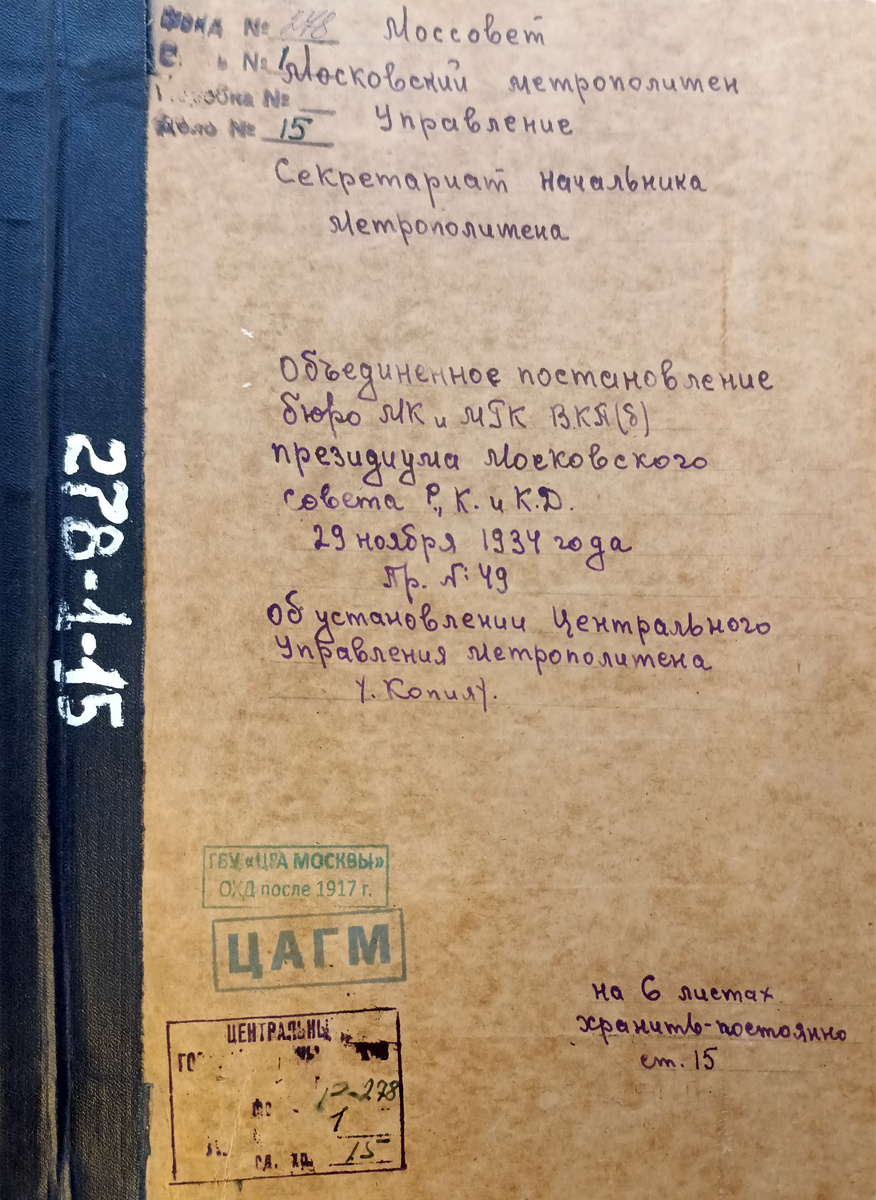 Фонд № 278
Моссовет
№ 1
Московский метрополитен
№
Дело № 15
Управление
Секретариат начальника
метрополитена
Объединенное постановление
бюро МК и МГК ВКП(б)
президиума Московского
совета Р., К. и К.Д.
29 ноября 1934 года
Пр. №: 49
Об установлении Центрального
Управления метрополитена
/.Копия/.
278-1-15
ГБУ «ЦГА МОСКВЫ»
ОХД после 1917 г.
ЦАГМ
на 6 листах
хранить-постоянно
ст. 15
ЦЕНТРАЛЬНЫ
Р-278
1
ед. хр. 15